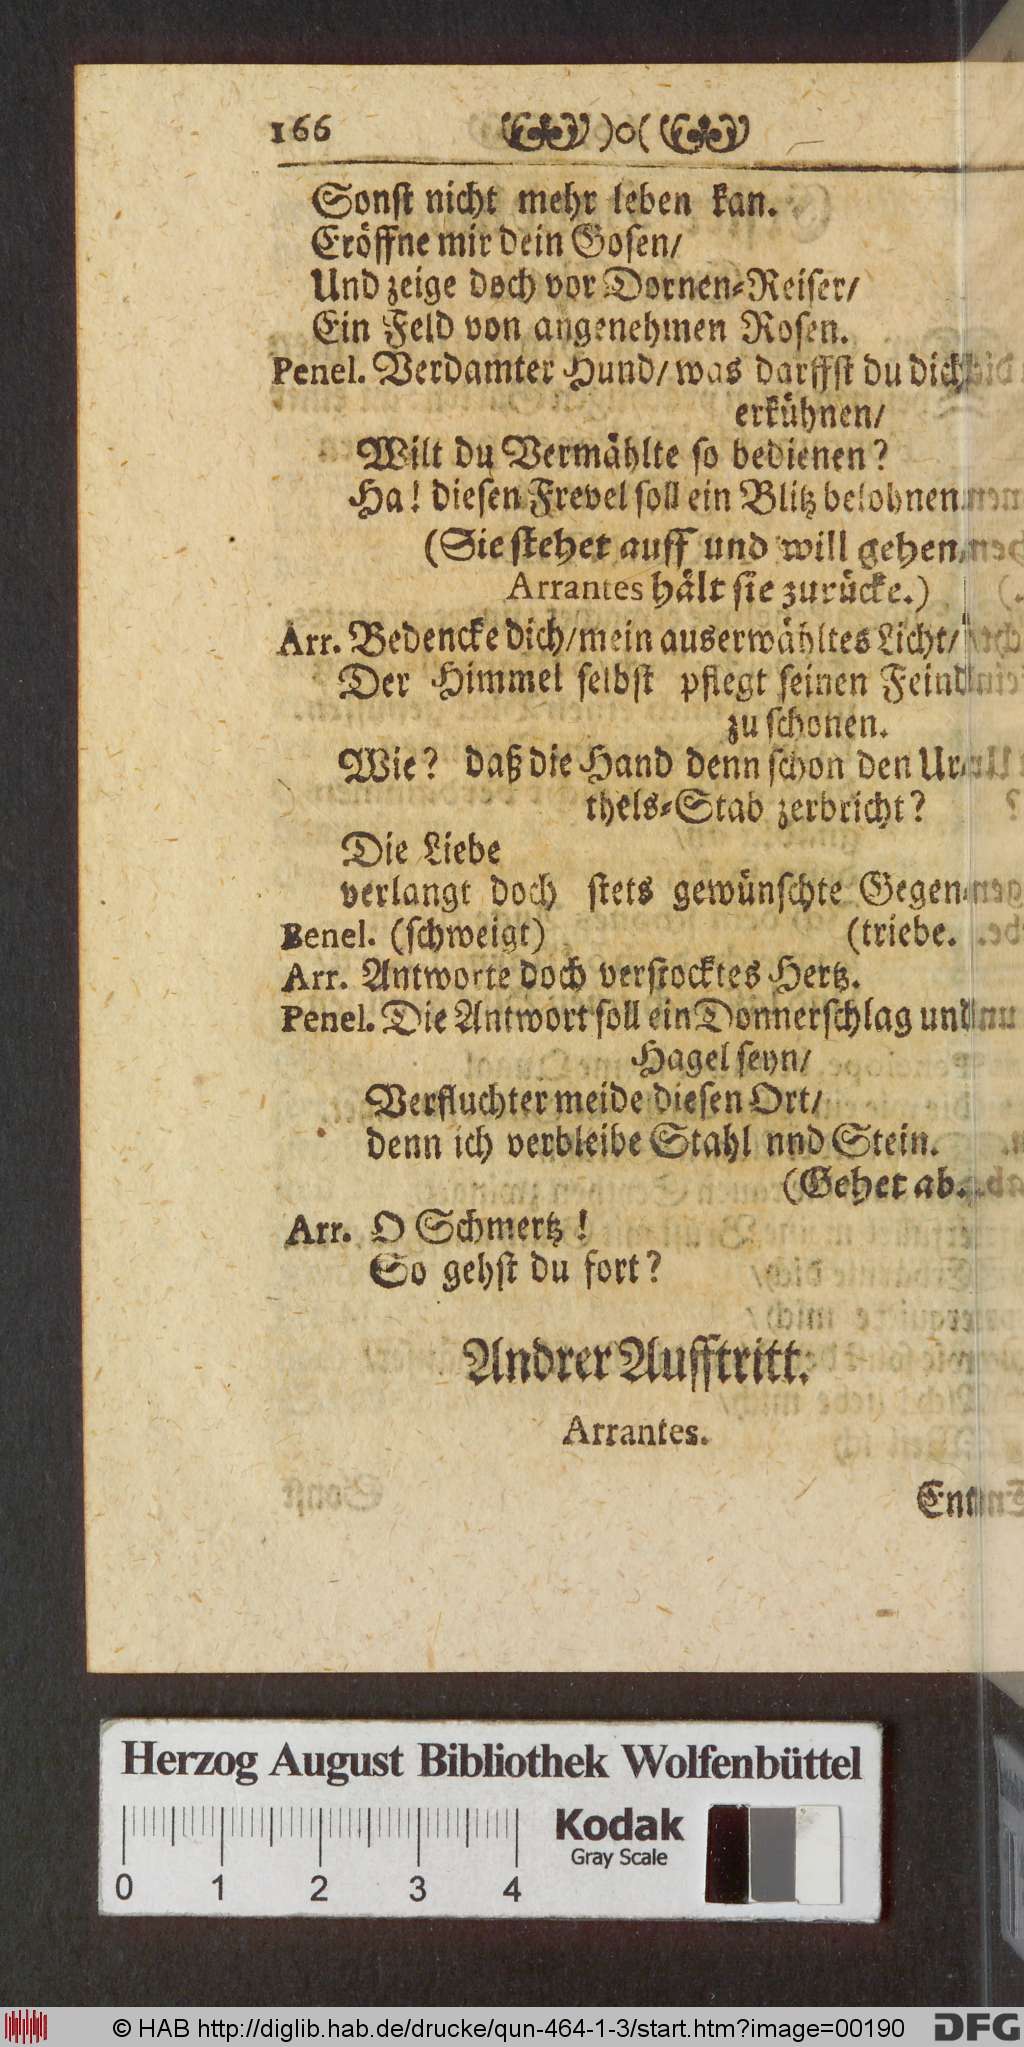 166 )o(
Sonst nicht mehr leben kan.
Eröffne mir dein Gosen/
Und zeige doch vor Dornen-Reiser/
Ein Feld von angenehmen Rosen.
Penel. Verdamter Hund/ was darffst du dich
erkühnen/
Wilt du Vermählte so bedienen?
Ha! diesen Frevel soll ein Blitz belohnen.
(Sie stehet auff und will gehen,
Arrantes hält sie zurücke.)
Arr. Bedencke dich/ mein auserwähltes Licht/
Der Himmel selbst pflegt seinen Feind
zu schonen.
Wie? daß die Hand denn schon den Ur-
thels-Stab zerbricht?
Die Liebe
verlangt doch stets gewünschte Gegen-
Benel. (schweigt) (triebe.
Arr. Antworte doch verstocktes Hertz.
Penel. Die Antwort soll ein Donnerschlag und
Hagel seyn/
Verfluchter meide diesen Ort/
denn ich verbleibe Stahl nnd Stein.
(Gehet ab.
Arr. O Schmertz!
So gehst du fort?
Andrer Aufftritt.
Arrantes.
Ent-
Herzog August Bibliothek Wolfenbüttel
Kodak
Gray Scale
0 1 2 3 4
© HAB http://diglib.hab.de/drucke/qun-464-1-3/start.htm?image=00190 DFG